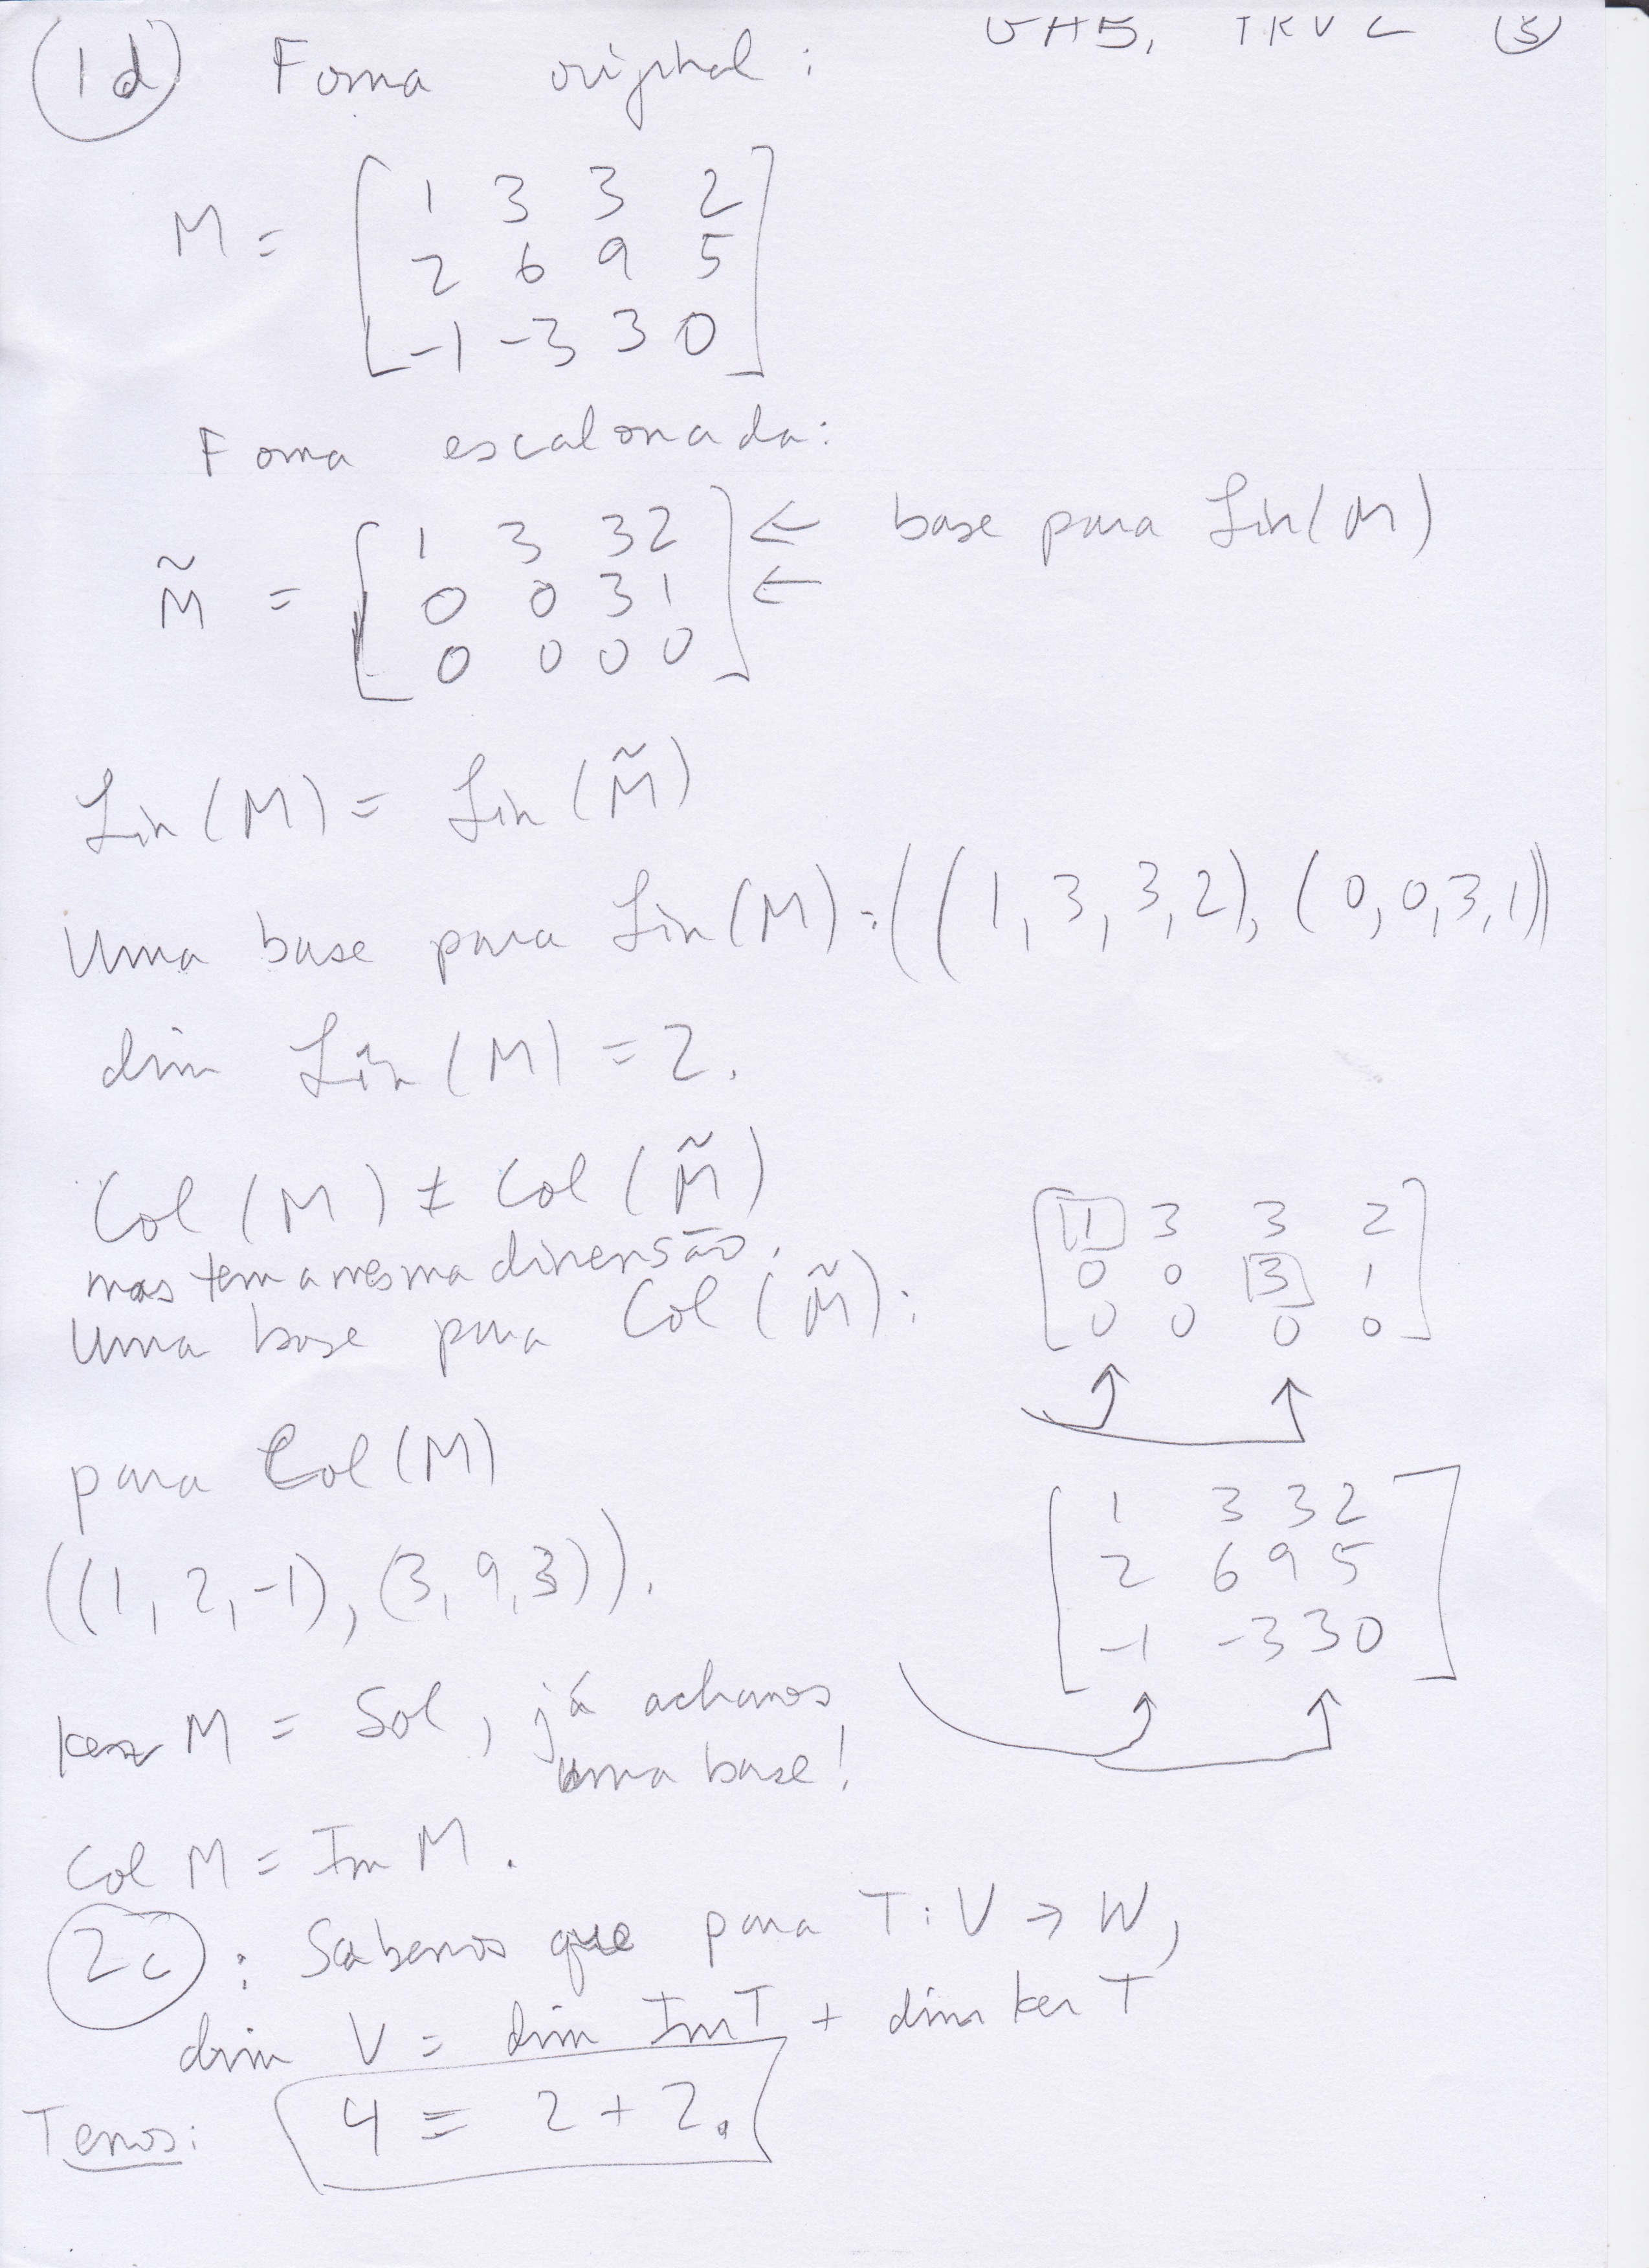 (1d) Forma original: (3)
M = [ 1 3 3 2
2 6 9 5
-1 -3 3 0 ]
Forma escalonada:
M̃ = [ 1 3 3 2 ← base para Lin(M)
0 0 3 1 ←
0 0 0 0 ]
Lin(M) = Lin(M̃)
Uma base para Lin(M): ((1,3,3,2), (0,0,3,1))
dim Lin(M) = 2.
Col(M) ≠ Col(M̃)
mas tem a mesma dimensão.
Uma base para Col(M̃):
[ 1 3 3 2
0 0 3 1
0 0 0 0 ]
para Col(M)
((1,2,-1), (3,9,3)).
[ 1 3 3 2
2 6 9 5
-1 -3 3 0 ]
ker M = Sol, já achamos
uma base!
Col M = Im M.
(2c): Sabemos que para T: V → W,
dim V = dim Im T + dim ker T
Temos: 4 = 2 + 2.